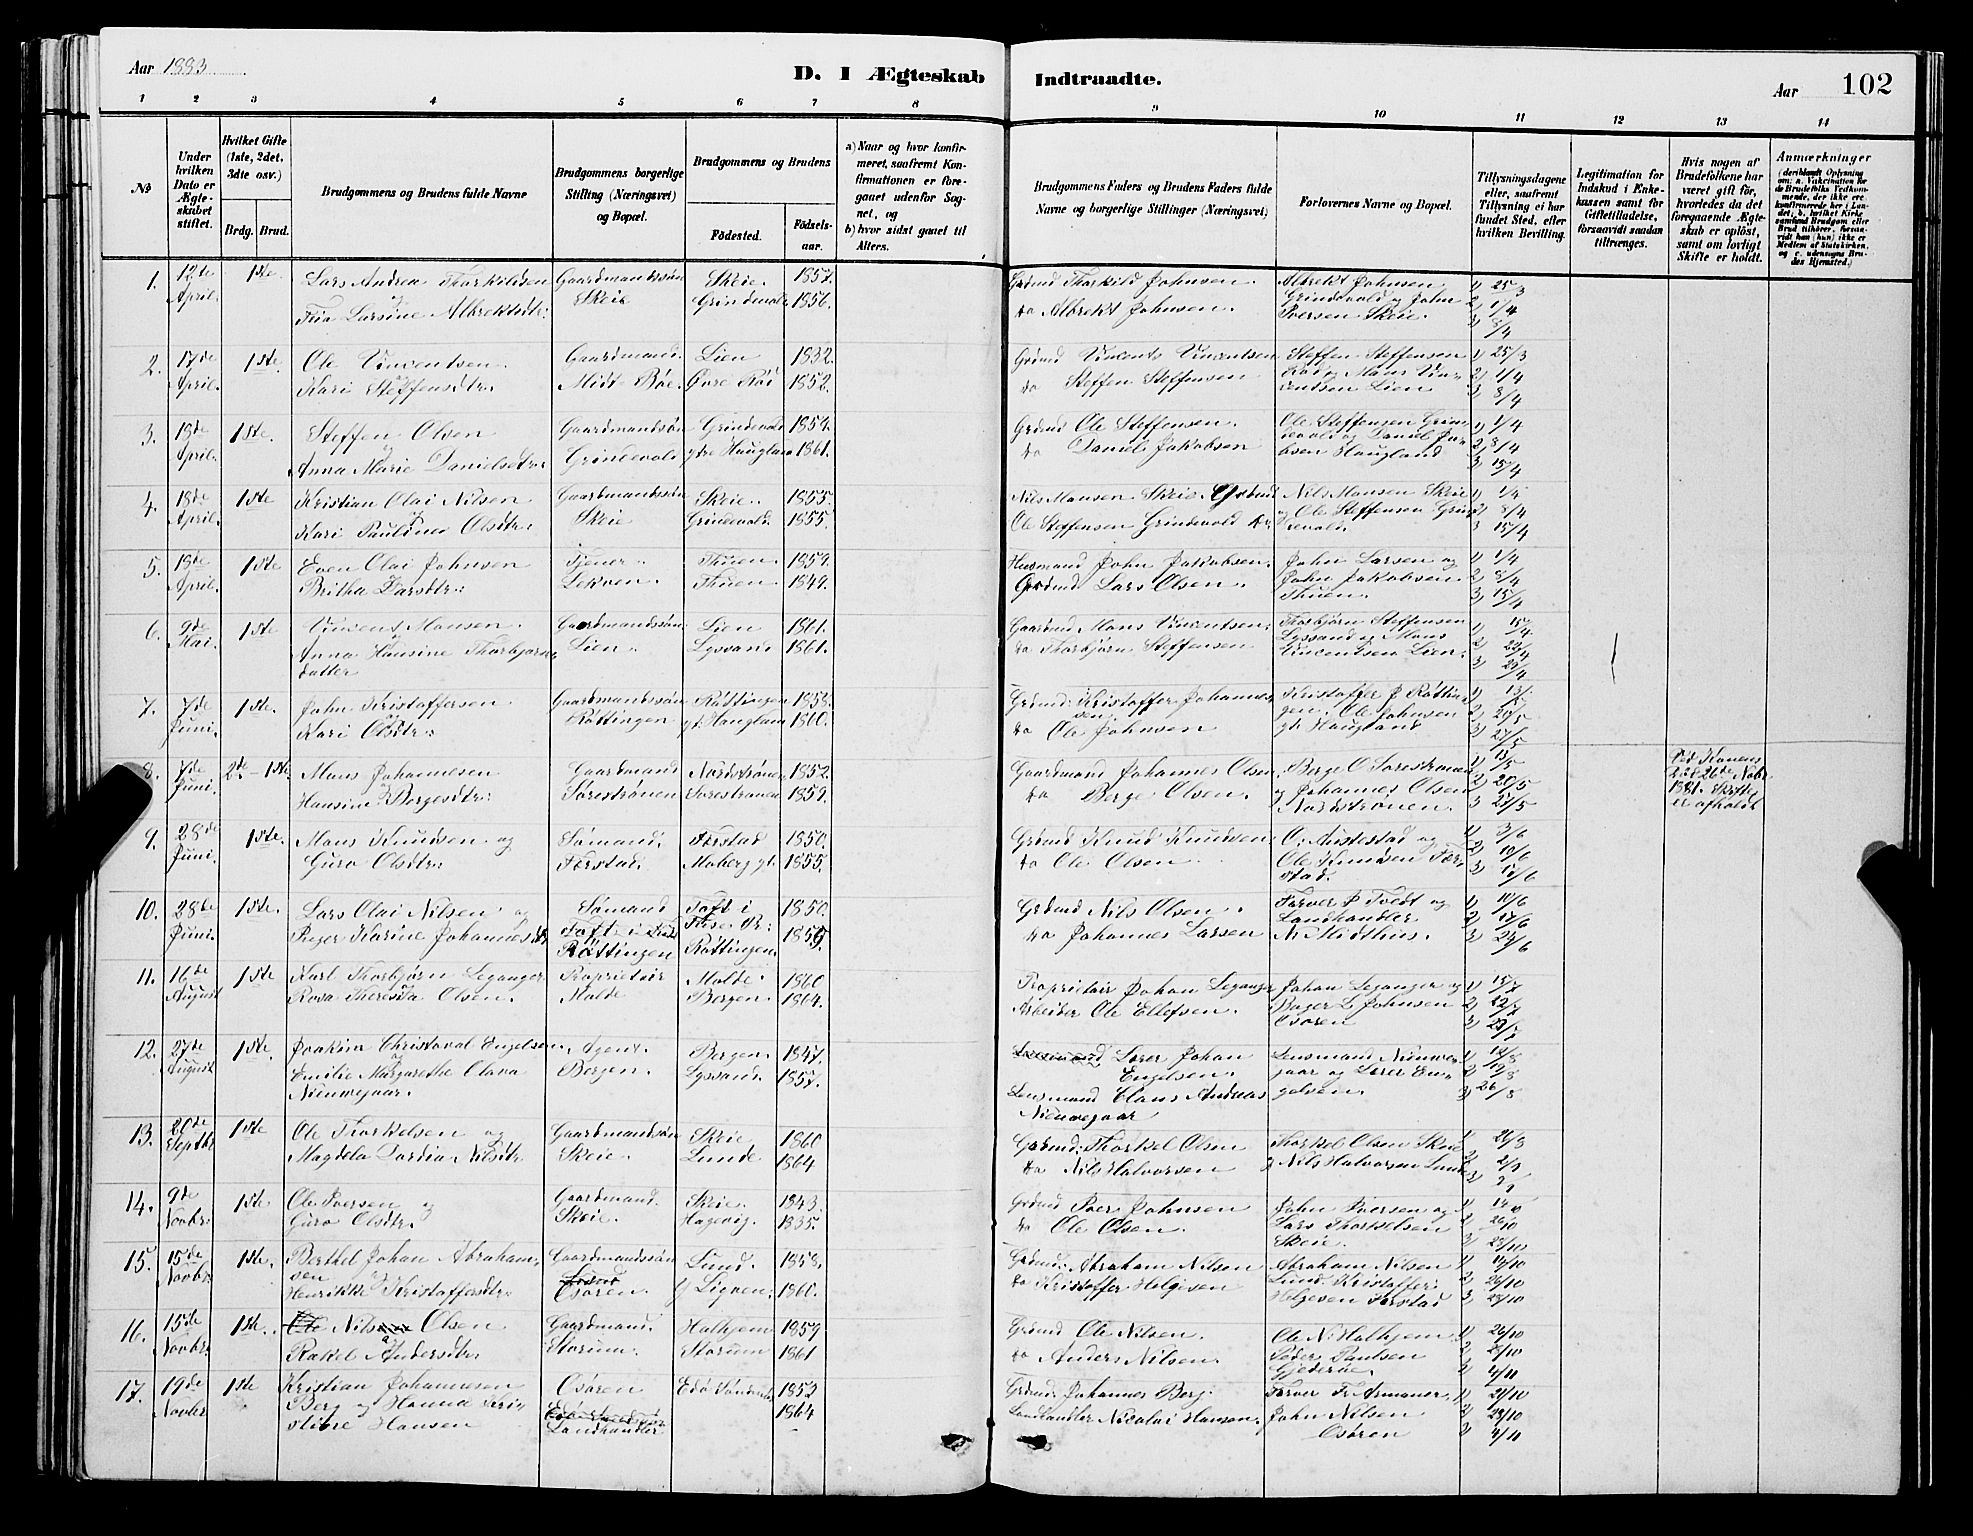 Aar 1883
D. I Ægteskab Indtraadte.
Aar 102
1 2 3 4 5 6 7 8 9 10 11 12 13 14
№
Under hvilken Dato er Ægteskabet stiftet.
Hvilket Gifte (1ste, 2det, 3die osv.)
Brdg. Brud.
Brudgommens og Brudens fulde Navne
Brudgommens borgerlige Stilling (Næringsvei) og Bopæl.
Brudgommens og Brudens
Fødested.
Fødselsaar.
a) Naar og hvor konfirmeret, saafremt Konfirmationen er foregaaet udenfor Sognet, og
b) hvor sidst gaaet til Alters.
Brudgommens Faders og Brudens Faders fulde Navne og borgerlige Stillinger (Næringsvei)
Forlovernes Navne og Bopæl.
Tillysningsdagene eller, saafremt Tillysning ei har fundet Sted, efter hvilken Bevilling.
Legitimation for Indskud i Enkekassen samt for Giftetilladelse, forsaavidt saadan tiltrænges.
Hvis nogen af Brudefolkene har været gift før, hvorledes da det foregaaende Ægteskab er opløst, samt om lovligt Skifte er holdt.
Anmærkninger
1. 12te April. 1ste. Lars Andrea Thorkildsen Gaardmandssøn Skeie. 1857. Grdmd Thorkild Johnsen. Albrekt Johnsen 1) 25/3
og Skeie Grindevold 1856. do Albrekt Johnsen. Grindevold og John 2) 1/4
Larsine Albrektdtr: Iversen Skeie. 3) 8/4
2. 17de April. 1ste Ole Vincentsen Gaardmand. Lien 1832. Grdmd Vincents Vincentsen Steffen Steffensen 1) 25/3
Kari Steffensdtr. Midt-Bøe. Øvre Rød 1852. do Steffen Steffensen Rød og Mons Vincentsen Lien 2) 1/4
3) 8/4
3. 18de April. 1ste. Steffen Olsen Gaardmandssøn Grindevold 1854. Grdmd Ole Steffensen. Ole Steffensen Grindevold og Daniel Jakobsen Haugland 1) 1/4
Anna Marie Danielsdtr. Grindevold ytre Haugland 1861. do Daniel Jakobsen 2) 8/4
3) 15/4
4. 18de April. 1ste Kristian Olai Nilsen Gaardmandssøn Skeie. 1855 Nils Monsen Skeie. Grdmd Nils Monsen Skeie 1) 1/4
Kari Pauline Olsdtr. Skeie Grindevold. 1855. Ole Steffensen Grindevold do og Ole Steffensen Grindevold. 2) 8/4
3 15/4
5. 18de April. 1ste Even Olai Johnsen Tjener Thuen. 1859. Husmand John Jakobsen. John Larsen og 1) 1/4
Britha Larsdtr: Lekven. Thuen. 1849. Grdmd Lars Olsen. John Jakobsen Thuen. 2) 8/4
3) 15/4
6. 9de Mai. 1ste Vincent Monsen. Gaardmandssøn Lien 1861. Gaardmd Mons Vincentsen. Thorbjørn Steffensen 1) 15/4
Anna Hansine Thorbjørnsdatter Lien. Lyssand 1861. do Thorbjørn Steffensen Lyssand og Mons Vincentsen Lien. 2) 22/4
3) 29/4
7. 7de Juni. 1ste. John Kristoffersen Gaardmandssøn Røttingen 1858. Grdmd: Kristoffer Johannessen Kristoffer J Røttingen. Ole Johnsen 1) 13/5
Kari Olsdtr: Røttingen yt. Haugland 1860. do Ole Johnsen yt. Haugland 2) 20/5
3) 27/5
8. 7de Juni. 2de 1ste Mons Johannesen Gaardmand Nordstrønen 1852. Gaardmand Johannes Olsen Berge O Sørestrønen 1) 13/5 Ved Konens Død 26de Novbr 1881. Skifte er afholdt
Hansine Bergesdtr: Sørestrønen Sørestrønen 1859. do Berge Olsen. og Johannes Olsen Nordstrønen. 2) 20/5
3 27/5
9. 28de Juni. 1ste. Mons Knudsen og Sømand. Forstad 1850. Grdmd Knud Knudsen O: Austestad og 1) 3/6
Guro Olsdtr. Forstad. Moberg yt. 1855. do Ole Olsen Ole Knudsen Forstad. 2) 10/6
3) 17/6
10. 28de Juni. 1ste. Lars Olai Nilsen og Sømand Toft i 1850. Grdmd Nils Olsen. Farver P Tvedt og 1) 10/6
Reger Karine Johannesdtr Toft i Røttingen Røttingen 1856. do Johannes Larsen Landhandler N. Midthus. 2) 17/6
3. 24/6
11. 16de August 1ste Karl Thorbjørn Leganger Proprietair Molde. 1860 Proprietair Johan Leganger Johan Leganger og 1) 15/7
Rosa Theresia Olsen. Molde Bergen. 1864. Arbeider Ole Ellefsen. Bager L Johnsen Osøren 2) 22/7
3) 29/7
12. 27de August 1ste. Joakim Christoval Engelsen Agent. Bergen. 1847. Lærer Johan Engelsen. Lensmand Nieuwejaar og Lærer Engelsen. 1) 12/8
Emilie Margarethe Olava Nieuwejaar. Bergen. Lyssand. 1857. Lensmand Claus Andreas Nieuwejaar 2) 19/8
3) 26/8
13. 20de Septbr 1ste Ole Thorkelsen og Gaardmandssøn Skeie 1860 Grdmd: Thorkel Olsen Thorkel Olsen Skeie 1 26/8
Magdela Nilsdtr Skeie. Lunde 1864 do Nils Halvorsen og Nils Halvorsen Lunde 2 2/9
3
14. 9de Novbr. 1ste Ole Iversen og Gaardmand. Skeie. 1843. Grdmd Iver Johnsen John Iversen og 1) 14/10
Guro Olsdtr. Skeie. Hagevig. 1835. do Ole Olsen. Lars Thorkelsen Skeie. 2
3) 28/10
15. 15de Novbr. 1ste. Berthel Johan Abrahamsen Gaardmandssøn Lund. 1858. Grdmd: Abraham Nilsen Abraham Nilsen 1) 14/10
Henrikke Kristoffersdtr. Osøren. Lignen. 1860. do Kristoffer Helgesen Lund. Kristoffer Helgesen Forstad 2)
3) 28/10
16. 15de Novbr. 1ste. Nils Olsen Gaardmand. Halhjem 1859 Grdmd Ole Nilsen. Ole N: Halhjem 1)
Rakel Andersdtr. Storum. Storum 1861 do Anders Nilsen. Peder Paulsen Gjederøe. 2) 28/10
3 4/11
17. 19de Novbr 1ste Kristian Johannesen Osøren Edø 1852 Grdmd: Johannes Berg. Farver Fr Armauer, 1) 21/10
Berg og Hanna Kristine Hansen Landhandler 1864 Landhandler Nicolai Hansen. John Nilsen Osøren 2) 28/10
3) 4/11